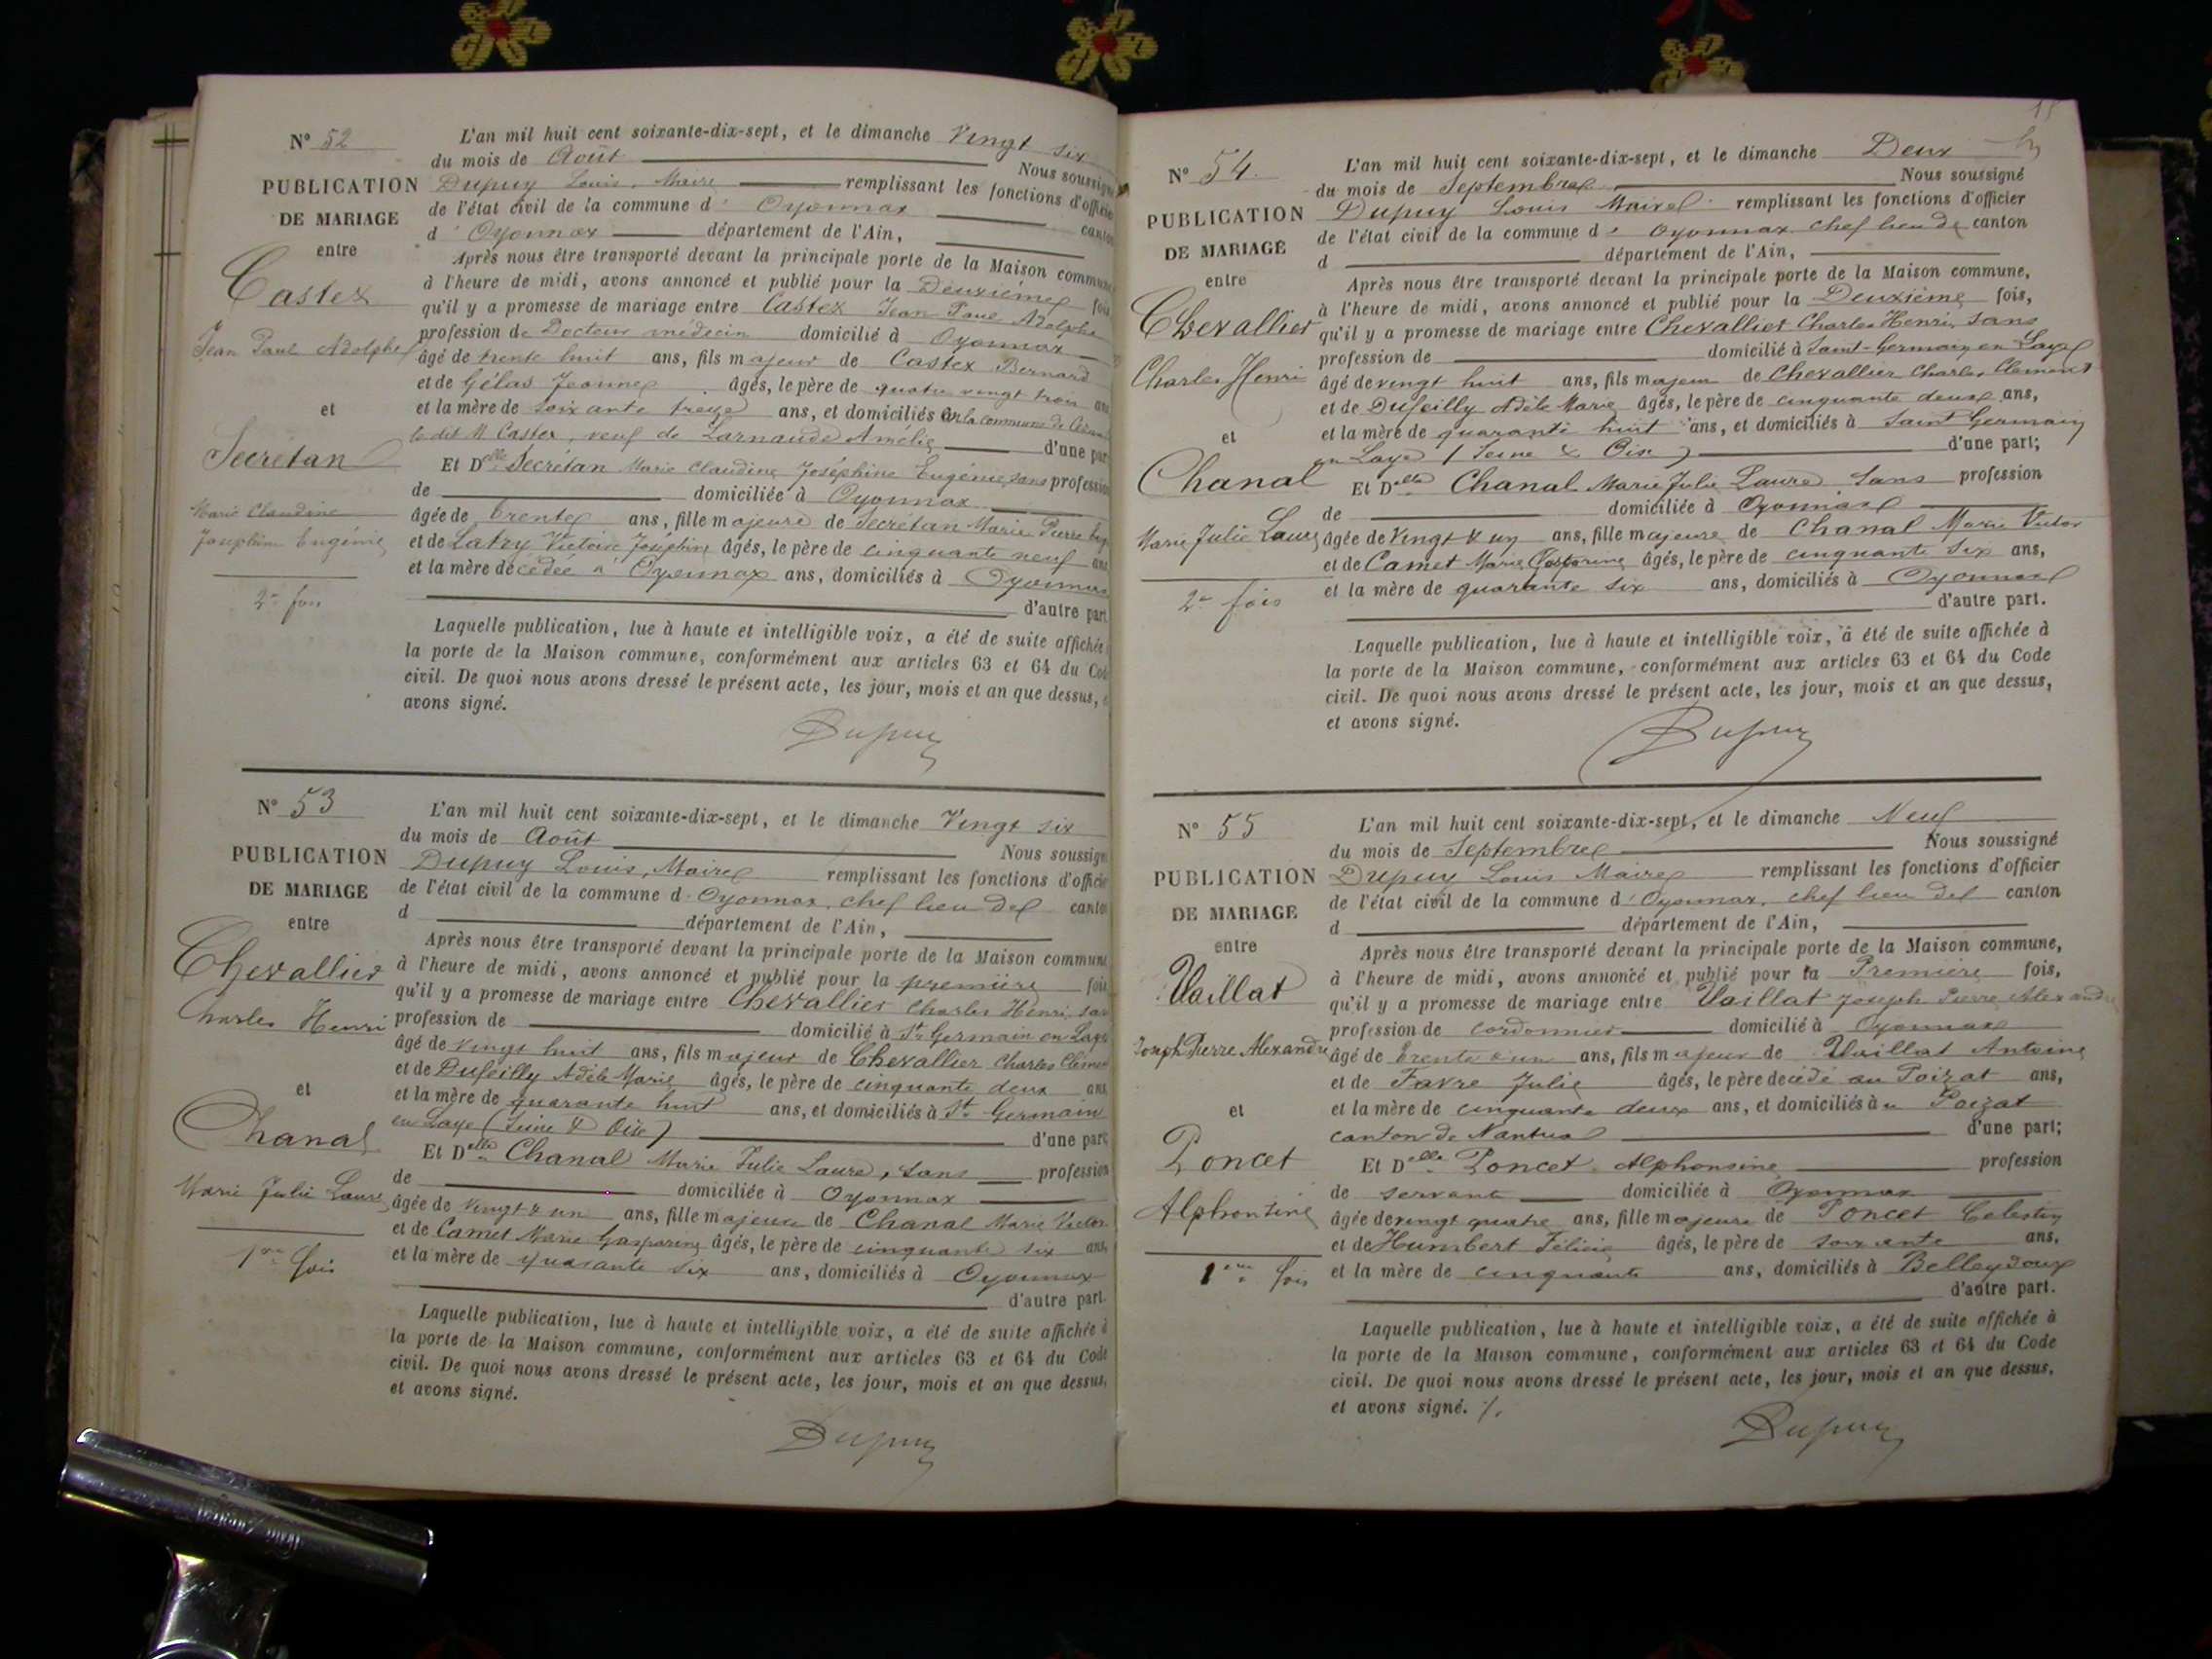 N° 52
PUBLICATION
DE MARIAGE
entre
Castex
Jean Paul Adolphe
et
Secrétan
Marie Claudine
Joséphine Eugénie
2e fois
L'an mil huit cent soixante-dix-sept, et le dimanche Vingt six
du mois de Août Nous soussigné
Dupuy Louis, Maire remplissant les fonctions d'officier
de l'état civil de la commune d' Oyonnax canton
d' Oyonnax département de l'Ain,
Après nous être transporté devant la principale porte de la Maison commune
à l'heure de midi, avons annoncé et publié pour la Deuxième fois
qu'il y a promesse de mariage entre Castex Jean Paul Adolphe
profession de Docteur médecin domicilié à Oyonnax
âgé de trente huit ans, fils majeur de Castex Bernard
et de Gélas Jeanne âgés, le père de quatre vingt trois ans
et la mère de soixante treize ans, et domiciliés la commune de
le dit M Castex, veuf de Larnaude Amélie d'une part
Et Delle Secrétan Marie Claudine Joséphine Eugénie, sans profession
de domiciliée à Oyonnax
âgée de trente ans, fille majeure de Secrétan Marie Pierre
et de Latry Victoire Joséphine âgés, le père de cinquante neuf ans
et la mère décédée à Oyonnax ans, domiciliés à Oyonnax
d'autre part
Laquelle publication, lue à haute et intelligible voix, a été de suite affichée
la porte de la Maison commune, conformément aux articles 63 et 64 du Code
civil. De quoi nous avons dressé le présent acte, les jour, mois et an que dessus,
avons signé.
Dupuy
N° 53
PUBLICATION
DE MARIAGE
entre
Chevallier
Charles Henri
et
Chanal
Marie Julie Laure
1ere fois
L'an mil huit cent soixante-dix-sept, et le dimanche Vingt six
du mois de Août Nous soussigné
Dupuy Louis, Maire remplissant les fonctions d'officier
de l'état civil de la commune d' Oyonnax, chef lieu de canton
d département de l'Ain,
Après nous être transporté devant la principale porte de la Maison commune
à l'heure de midi, avons annoncé et publié pour la première fois
qu'il y a promesse de mariage entre Chevallier Charles Henri, sans
profession de domicilié à St Germain en Laye
âgé de vingt huit ans, fils majeur de Chevallier Charles Clément
et de Dufeilly Adèle Marie âgés, le père de cinquante deux ans
et la mère de quarante huit ans, et domiciliés à St Germain
en Laye (Seine & Oise) d'une part
Et Delle Chanal Marie Julie Laure, sans profession
de domiciliée à Oyonnax
âgée de vingt & un ans, fille majeure de Chanal Marie Victor
et de Camet Marie Gasparine âgés, le père de cinquante six ans
et la mère de quarante six ans, domiciliés à Oyonnax
d'autre part.
Laquelle publication, lue à haute et intelligible voix, a été de suite affichée à
la porte de la Maison commune, conformément aux articles 63 et 64 du Code
civil. De quoi nous avons dressé le présent acte, les jour, mois et an que dessus,
et avons signé.
Dupuy
N° 54
PUBLICATION
DE MARIAGE
entre
Chevallier
Charles Henri
et
Chanal
Marie Julie Laure
2e fois
L'an mil huit cent soixante-dix-sept, et le dimanche Deux
du mois de Septembre Nous soussigné
Dupuy Louis Maire remplissant les fonctions d'officier
de l'état civil de la commune d' Oyonnax chef lieu de canton
d département de l'Ain,
Après nous être transporté devant la principale porte de la Maison commune,
à l'heure de midi, avons annoncé et publié pour la Deuxième fois,
qu'il y a promesse de mariage entre Chevallier Charles Henri, sans
profession de domicilié à Saint-Germain en Laye
âgé de vingt huit ans, fils majeur de Chevallier Charles Clément
et de Dufeilly Adèle Marie âgés, le père de cinquante deux ans,
et la mère de quarante huit ans, et domiciliés à Saint Germain
en Laye (Seine & Oise) d'une part;
Et Delle Chanal Marie Julie Laure sans profession
de domiciliée à Oyonnax
âgée de vingt & un ans, fille majeure de Chanal Marie Victor
et de Camet Marie Gasparine âgés, le père de cinquante six ans,
et la mère de quarante six ans, domiciliés à Oyonnax
d'autre part.
Laquelle publication, lue à haute et intelligible voix, a été de suite affichée à
la porte de la Maison commune, conformément aux articles 63 et 64 du Code
civil. De quoi nous avons dressé le présent acte, les jour, mois et an que dessus,
et avons signé.
Dupuy
N° 55
PUBLICATION
DE MARIAGE
entre
Vaillat
Joseph Pierre Alexandre
et
Poncet
Alphonsine
1ere fois
L'an mil huit cent soixante-dix-sept, et le dimanche Neuf
du mois de Septembre Nous soussigné
Dupuy Louis Maire remplissant les fonctions d'officier
de l'état civil de la commune d' Oyonnax, chef lieu de canton
d département de l'Ain,
Après nous être transporté devant la principale porte de la Maison commune,
à l'heure de midi, avons annoncé et publié pour la Première fois,
qu'il y a promesse de mariage entre Vaillat Joseph Pierre Alexandre
profession de cordonnier domicilié à Oyonnax
âgé de trente & un ans, fils majeur de Vaillat Antoine
et de Favre Julie âgés, le père décédé au Poizat ans,
et la mère de cinquante deux ans, et domiciliés à u Poizat
canton de Nantua d'une part;
Et Delle Poncet Alphonsine profession
de servante domiciliée à Oyonnax
âgée de vingt quatre ans, fille majeure de Poncet Célestin
et de Humbert Félicie âgés, le père de soixante ans,
et la mère de cinquante ans, domiciliés à Belleydoux
d'autre part.
Laquelle publication, lue à haute et intelligible voix, a été de suite affichée à
la porte de la Maison commune, conformément aux articles 63 et 64 du Code
civil. De quoi nous avons dressé le présent acte, les jour, mois et an que dessus,
et avons signé.
Dupuy